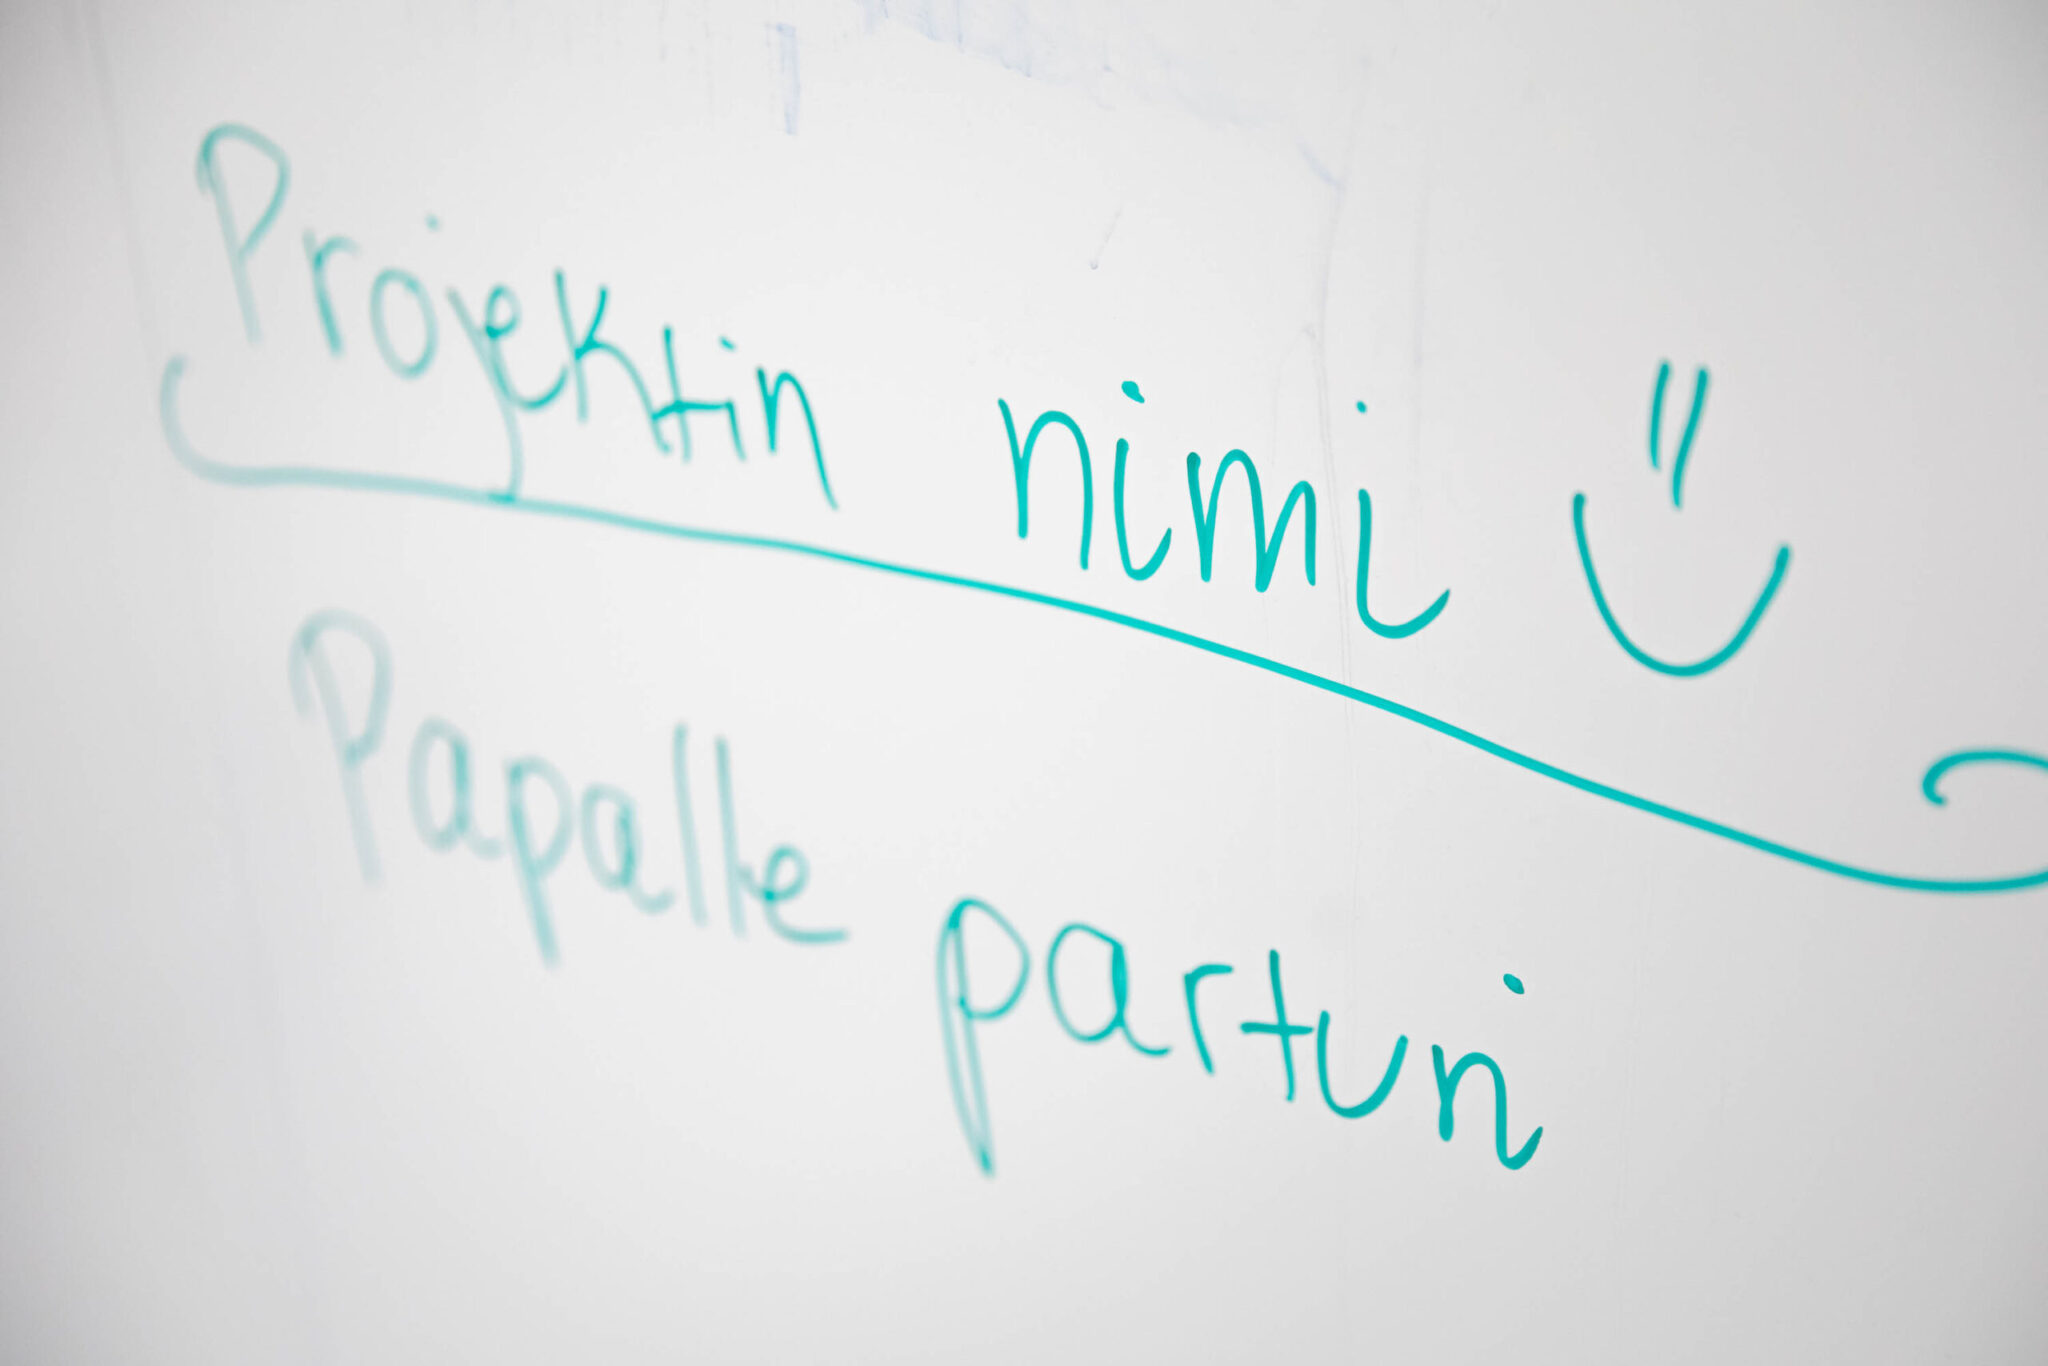 Projektin nimi
Papalle parturi